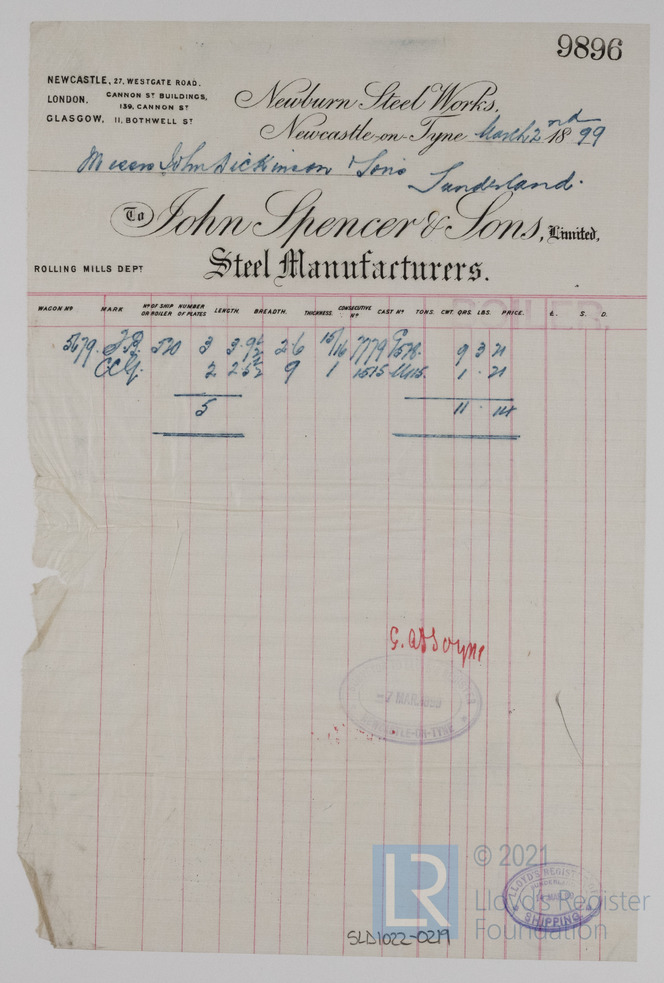 9896
NEWCASTLE, 27, WESTGATE ROAD.
LONDON, CANNON ST BUILDINGS,
139, CANNON ST
GLASGOW, 11, BOTHWELL ST
Newburn Steel Works,
Newcastle-on-Tyne March 2nd 1899
Messrs John Dickinson & Sons
Sunderland.
To John Spencer & Sons, Limited,
ROLLING MILLS DEPT
Steel Manufacturers.
WAGON Nº MARK Nº OF SHIP OR BOILER NUMBER OF PLATES LENGTH. BREADTH. THICKNESS. CONSECUTIVE Nº CAST Nº TONS. CWT. QRS. LBS. PRICE. £. S. D.
5679 520 3 3.9½ 2.6 15/16 7779 9 3 21
2 2.5½ 9 1 1515 1 . 21
5 11 . 14
7 MAR 1899
NEWCASTLE-ON-TYNE
© 2021
LR Lloyd's Register
Foundation
LLOYD'S REGISTER
SHIPPING
SLD1022-0219